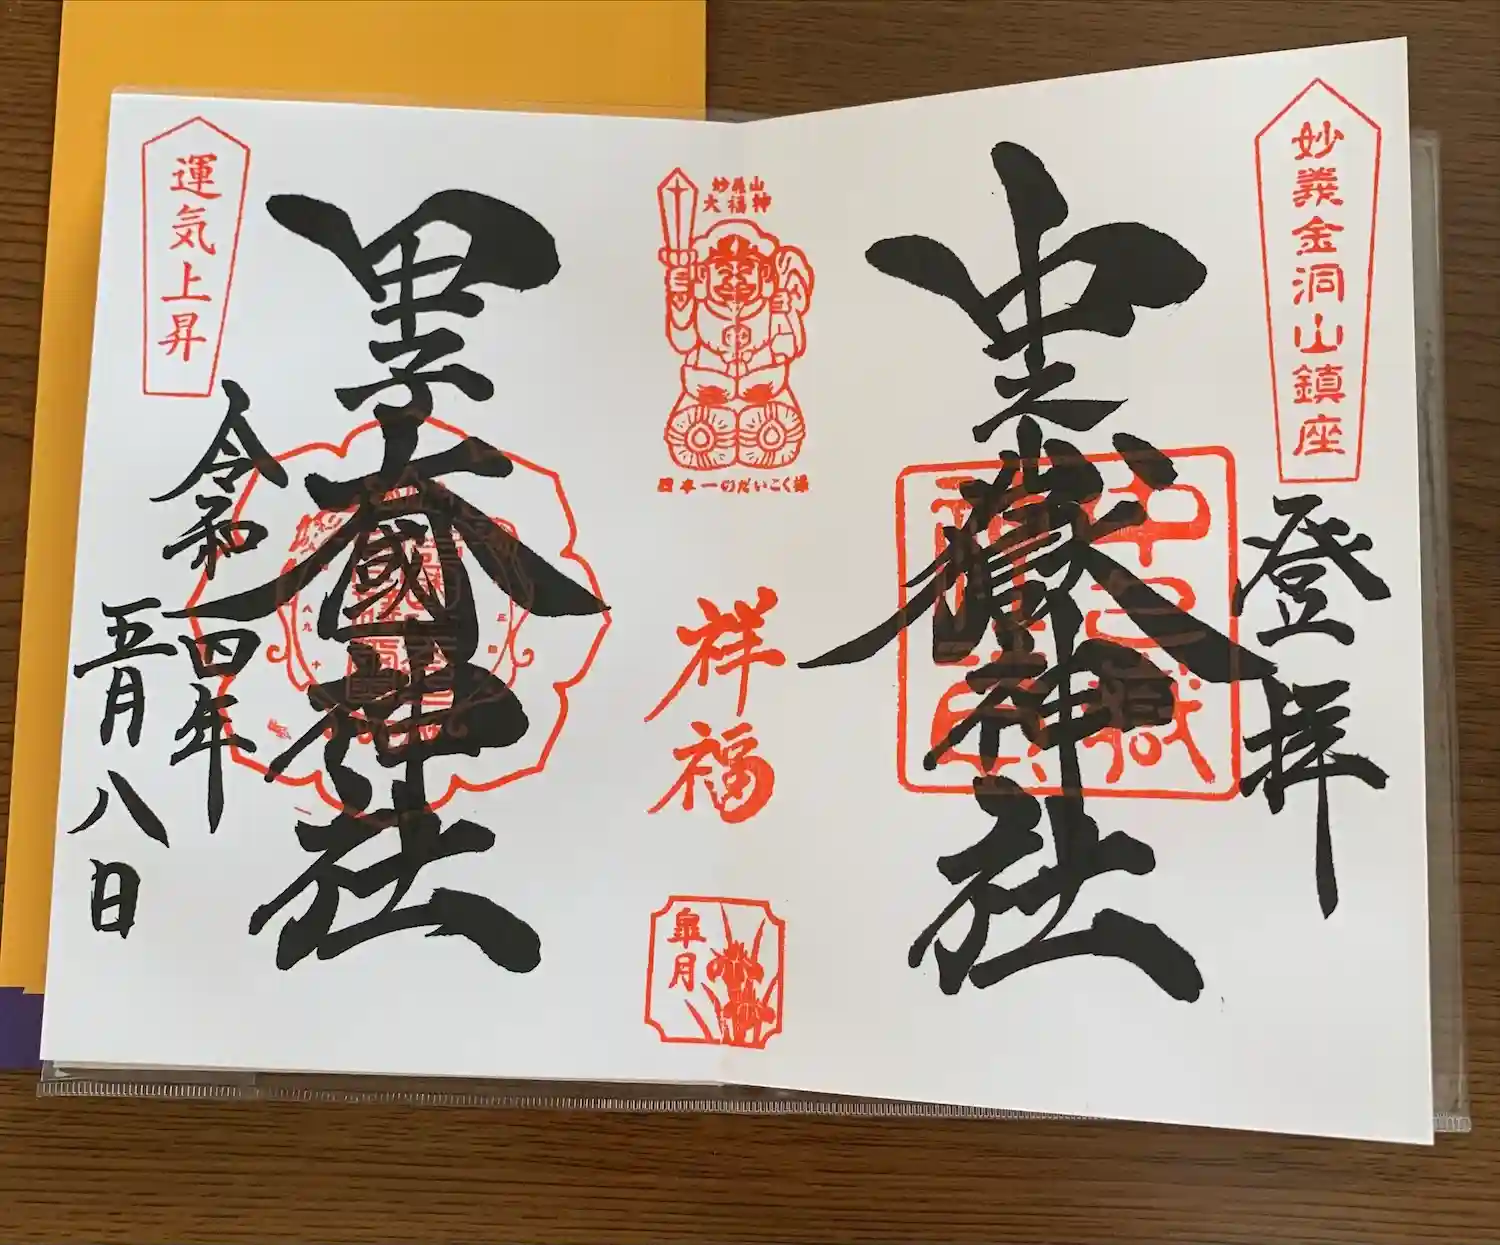 妙義金洞山鎮座
登拝
中之嶽神社
妙義山
大福神
日本一のだいこく様
祥福
皐月
甲子大國神社
運気上昇
令和四年
五月八日